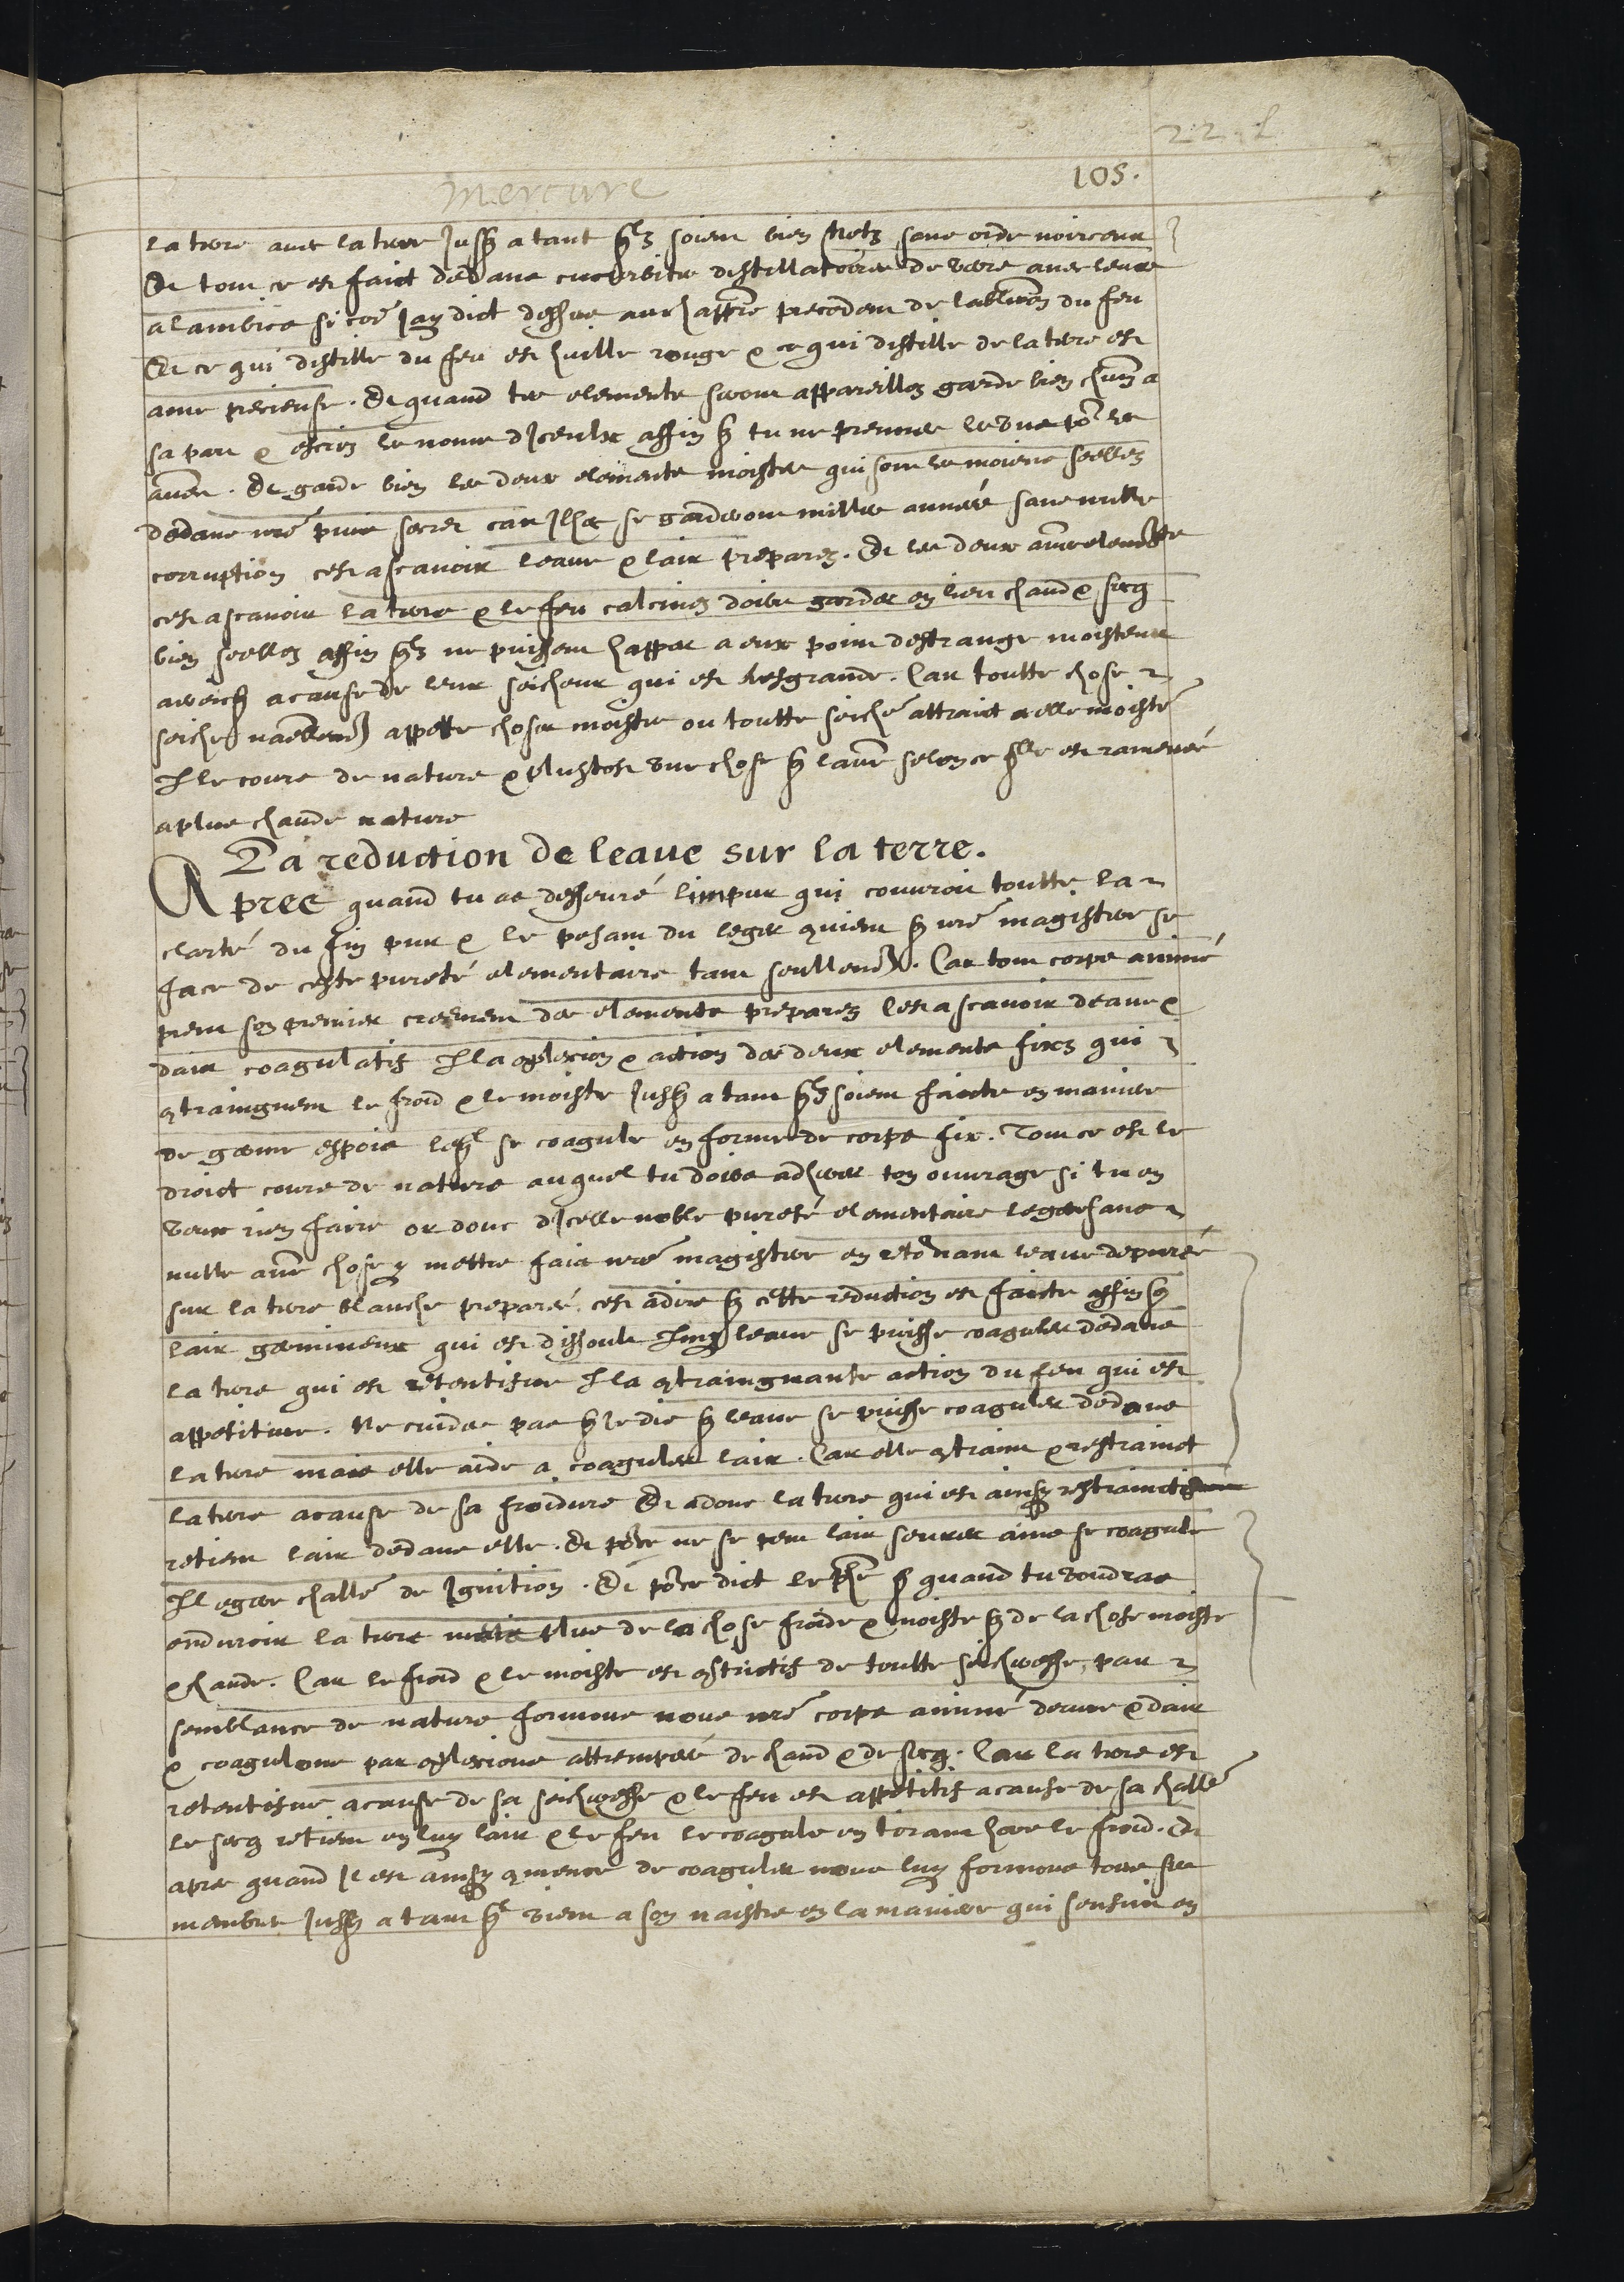 22.
105.
mercure
la terre avec la terre jusq a tant qlz soient bien netz sans orde noirceur
Et tout ce est faict dedans cucurbites distillatoires de verre avec leurs
alambics si coe jay dict dessus au chappre precedent de lablution du feu
Et ce qui distille du feu est huille rouge & ce qui distille de la terre est
ame precieuse. Et quand tes elements seront appareillez garde bien chun a
sa part & escris le nom diceulx affin q tu ne prennes les uns por les
aues. Et garde bien les deux elements moistes qui sont les moiens seellez
dedans nre puis secret car ilz se garderont milles années sans nulle
corruption cest ascavoir leaue & lair preparez. Et les deux aues elements
cest ascavoir la terre & le feu calcinez doibs garder en lieu chaud & secq
bien seellez affin qlz ne puissent happer a eux point destrange moisteur
a cause de leur seicheur qui est tresgrande. Car toutte chose
seiche naellemt appette choses moistes ou toutte seiche attraict a elle moiste
le cours de nature & plustost une chose q laue selon ce qlle est ramenée
a plus chaude nature
La reduction de leaue sur la terre.
Apres quand tu as desseuré limpur qui couvroit toutte la
clarté du fin pur & le pesant du leger convient q nre magistere se
face de ceste pureté elementaire tant seullemt. Car tout corps animé
prent son premier creement des elements preparez cest ascavoir deaue &
dair coagulatif la coplexion & action des deux elements fixs qui
contraingnent le froid & le moiste jusq a tant qlz soient faictes en maniere
de gome espois leql se coagule en forme de corps fix. Tout ce est le
droict cours de nature auquel tu doibs adherer ton ouvrage si tu en
veux rien faire or donc dicelle noble pureté elementaire legere sans
nulle aue chose y mettre fais nre magistere en retornant leaue depurée
sur la terre blanche preparée cest adire q cette reduction est faicte affin q
lair gomineux qui est dissoult leaue se puisse coaguler dedans
la terre qui est retentifve la contraingnante action du feu qui est
appetitive. Ne cuides pas q je die q leaue se puisse coaguler dedans
la terre mais elle aide a coaguler lair. Car elle contraint & restrainct
la terre a cause de sa froidure Et adonc la terre qui est ainsy restraincte
retient lair dedans elle. Et porce ne se peut lair seurer ains se coagule
legere challe de ignition. Et porce dict le phe q quand tu voudras
endurcir la terre mets plus de la chose froide & moiste q de la chose moiste
& chaude. Car le froid & le moiste est constrictif de toutte seicheresse par
semblance de nature formons nous nre corps animé deaue & dair
& coagulons par coplexions attrempées de chaud & de secq. Car la terre est
retentifve a cause de sa seicheresse & le feu est appetitif a cause de sa challe
le secq retient en luy lair & le feu le coagule en tirant hors le froid. Et
apres quand il est ainsy comence de coaguler nous luy formons tous ses
membres jusq a tant ql vient a son naistre en la maniere qui sensuit en